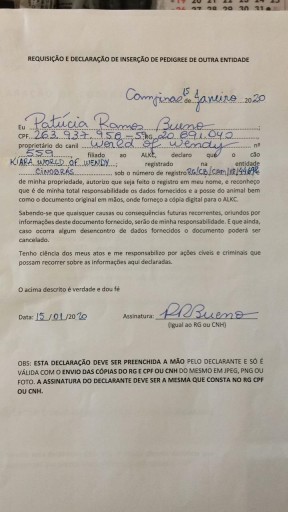 REQUISIÇÃO E DECLARAÇÃO DE INSERÇÃO DE PEDIGREE DE OUTRA ENTIDADE
Campinas 15 de Janeiro 2020
Eu Patrícia Ramos Bueno
CPF 263.937.958-59 RG 20.891.040
proprietário do canil World of Wendy nº
559 filiado ao ALKC, declaro que o cão
KIARA WORLD OF WENDY registrado na entidade
CINOBRÁS sob o número de registro
de minha propriedade, autorizo que seja feito o registro em meu nome, e reconheço
que é de minha total responsabilidade os dados fornecidos e a posse do animal bem
como o documento original em mãos, onde forneço a cópia digital para o ALKC.
Sabendo-se que quaisquer causas ou consequências futuras recorrentes, oriundos por
informações deste documento fornecido, serão de minha responsabilidade. E que ainda,
caso ocorra algum desencontro de dados fornecidos o documento poderá ser
cancelado.
Tenho ciência dos meus atos e me responsabilizo por ações cíveis e criminais que
possam recorrer sobre as informações aqui declaradas.
O acima descrito é verdade e dou fé
Data: 15/01/2020 Assinatura: PRBueno
(Igual ao RG ou CNH)
OBS: ESTA DECLARAÇÃO DEVE SER PREENCHIDA A MÃO PELO DECLARANTE E SÓ É
VÁLIDA COM O ENVIO DAS CÓPIAS DO RG E CPF OU CNH DO MESMO EM JPEG, PNG OU
FOTO. A ASSINATURA DO DECLARANTE DEVE SER A MESMA QUE CONSTA NO RG CPF
OU CNH.